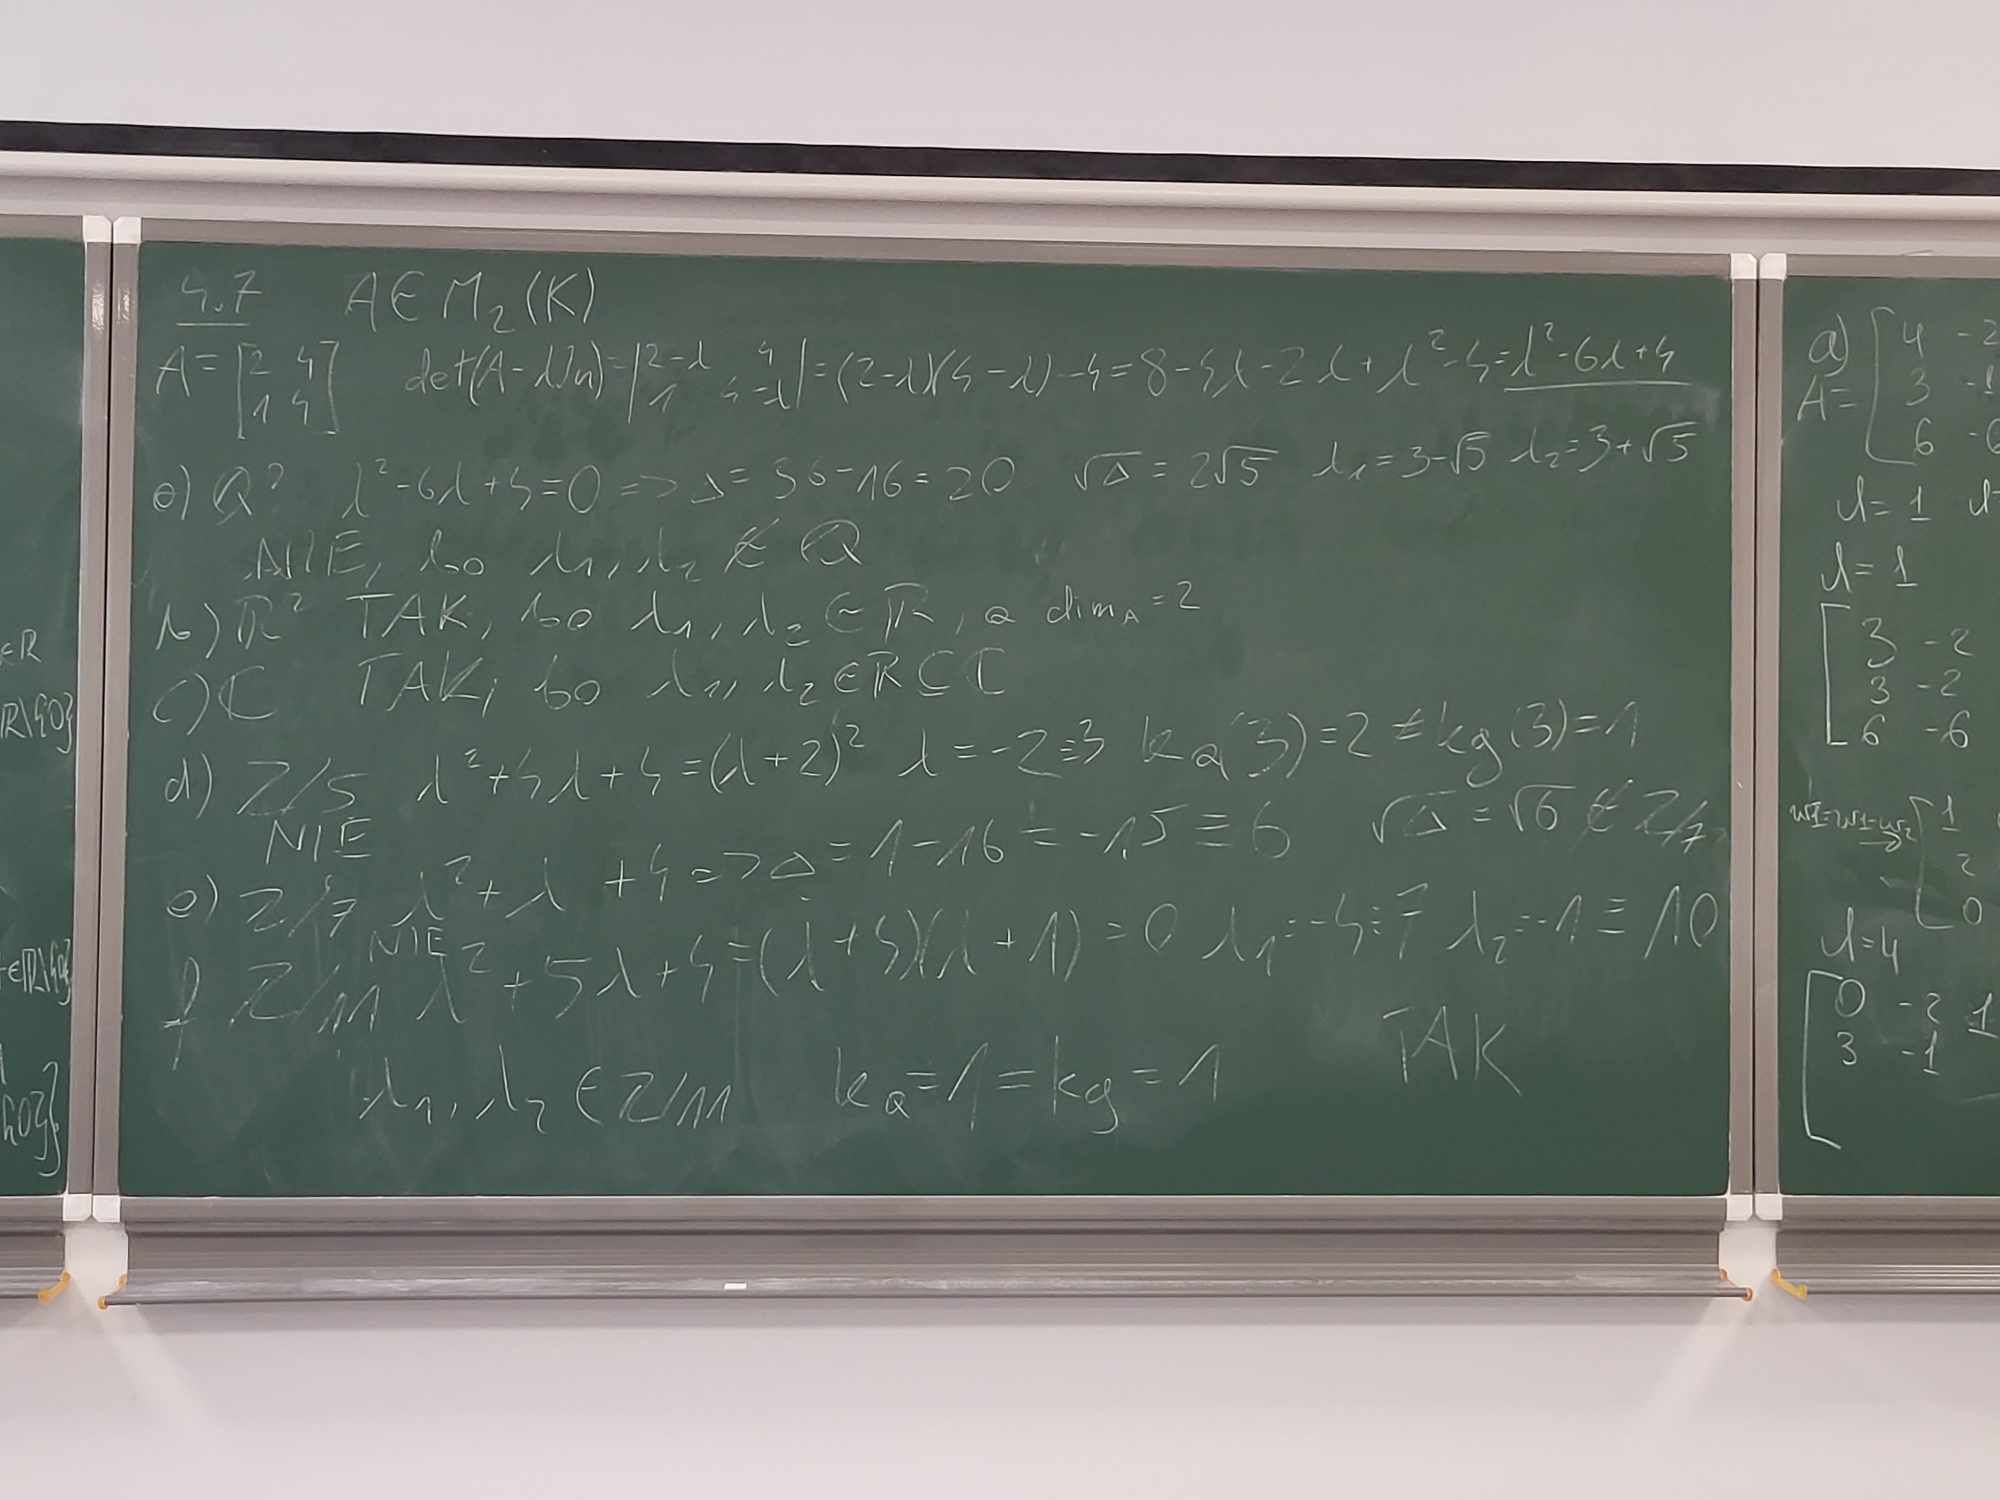 ∈R
R\{0}
∈R\{0}
{0}}.
4.7 A∈M₂(K)
A=[2 4; 1 4] det(A-λIn)=|2-λ 4; 1 4-λ|=(2-λ)(4-λ)-4=8-4λ-2λ+λ²-4=λ²-6λ+4
a) Q? λ²-6λ+4=0 => Δ=36-16=20 √Δ=2√5 λ₁=3-√5 λ₂=3+√5
NIE, bo λ₁,λ₂∉Q
b) R? TAK, bo λ₁,λ₂∈R, a dim_A=2
c) C TAK, bo λ₁,λ₂∈R⊆C
d) Z/5 λ²+4λ+4=(λ+2)² λ=-2≡3 ka(3)=2≠kg(3)=1
NIE
e) Z/7 λ²+λ+4=>Δ=1-16=-15≡6 √Δ=√6∉Z/7
NIE
f Z/11 λ²+5λ+4=(λ+4)(λ+1)=0 λ₁=-4≡7 λ₂=-1≡10
λ₁,λ₂∈Z/11 ka=1=kg=1 TAK
a)
A=[4 -2
3 -1
6 -6
λ=1 λ=
λ=1
[3 -2
3 -2
6 -6
w1=w1-w2 → [1
2
0
λ=4
[0 -2 1
3 -1